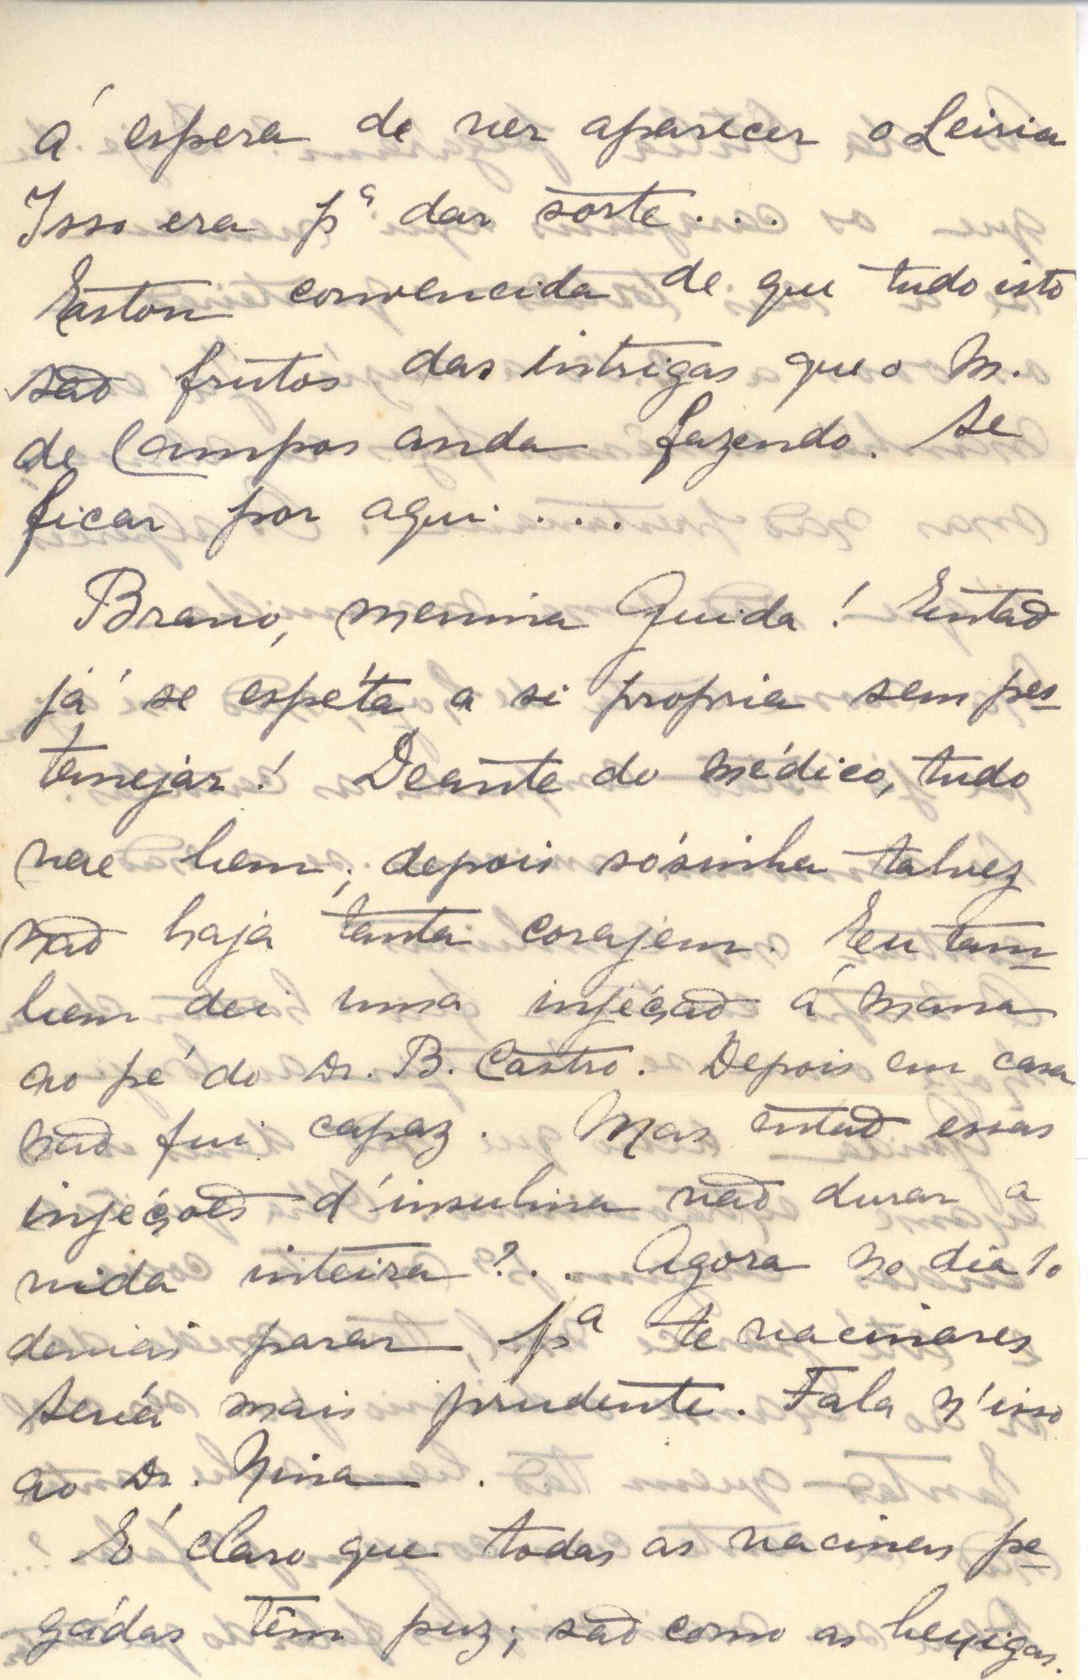 á espera de ver aparecer o Leiria
Isso era pª dar sorte...
Estou convencida de que tudo isto
são frutos das intrigas que o M.
de Campos anda fazendo. Se
ficar por aqui....
Bravo, menina Guida! Então
já se espéta a si propria sem pes-
tanejar! Deante do médico, tudo
vae bem; depois sósinha talvez
não haja tanta corajem. Eu tam-
bem dei uma injéção á Mana
ao pé do Dr. B. Castro. Depois em casa
não fui capaz. Mas então essas
injéções d'insulina vão durar a
vida inteira?.. Agora no dia 1o
devias parar, pª te vacinares
seria mais prudente. Fala n'isso
ao Dr. Nina.
É claro que todas as vacinas pe-
gádas têm puz; são como as bexigas.